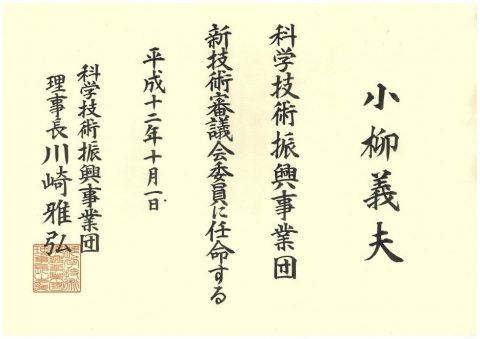 小柳義夫
科学技術振興事業団
新技術審議会委員に任命する
平成十二年十月一日
科学技術振興事業団
理事長 川崎雅弘